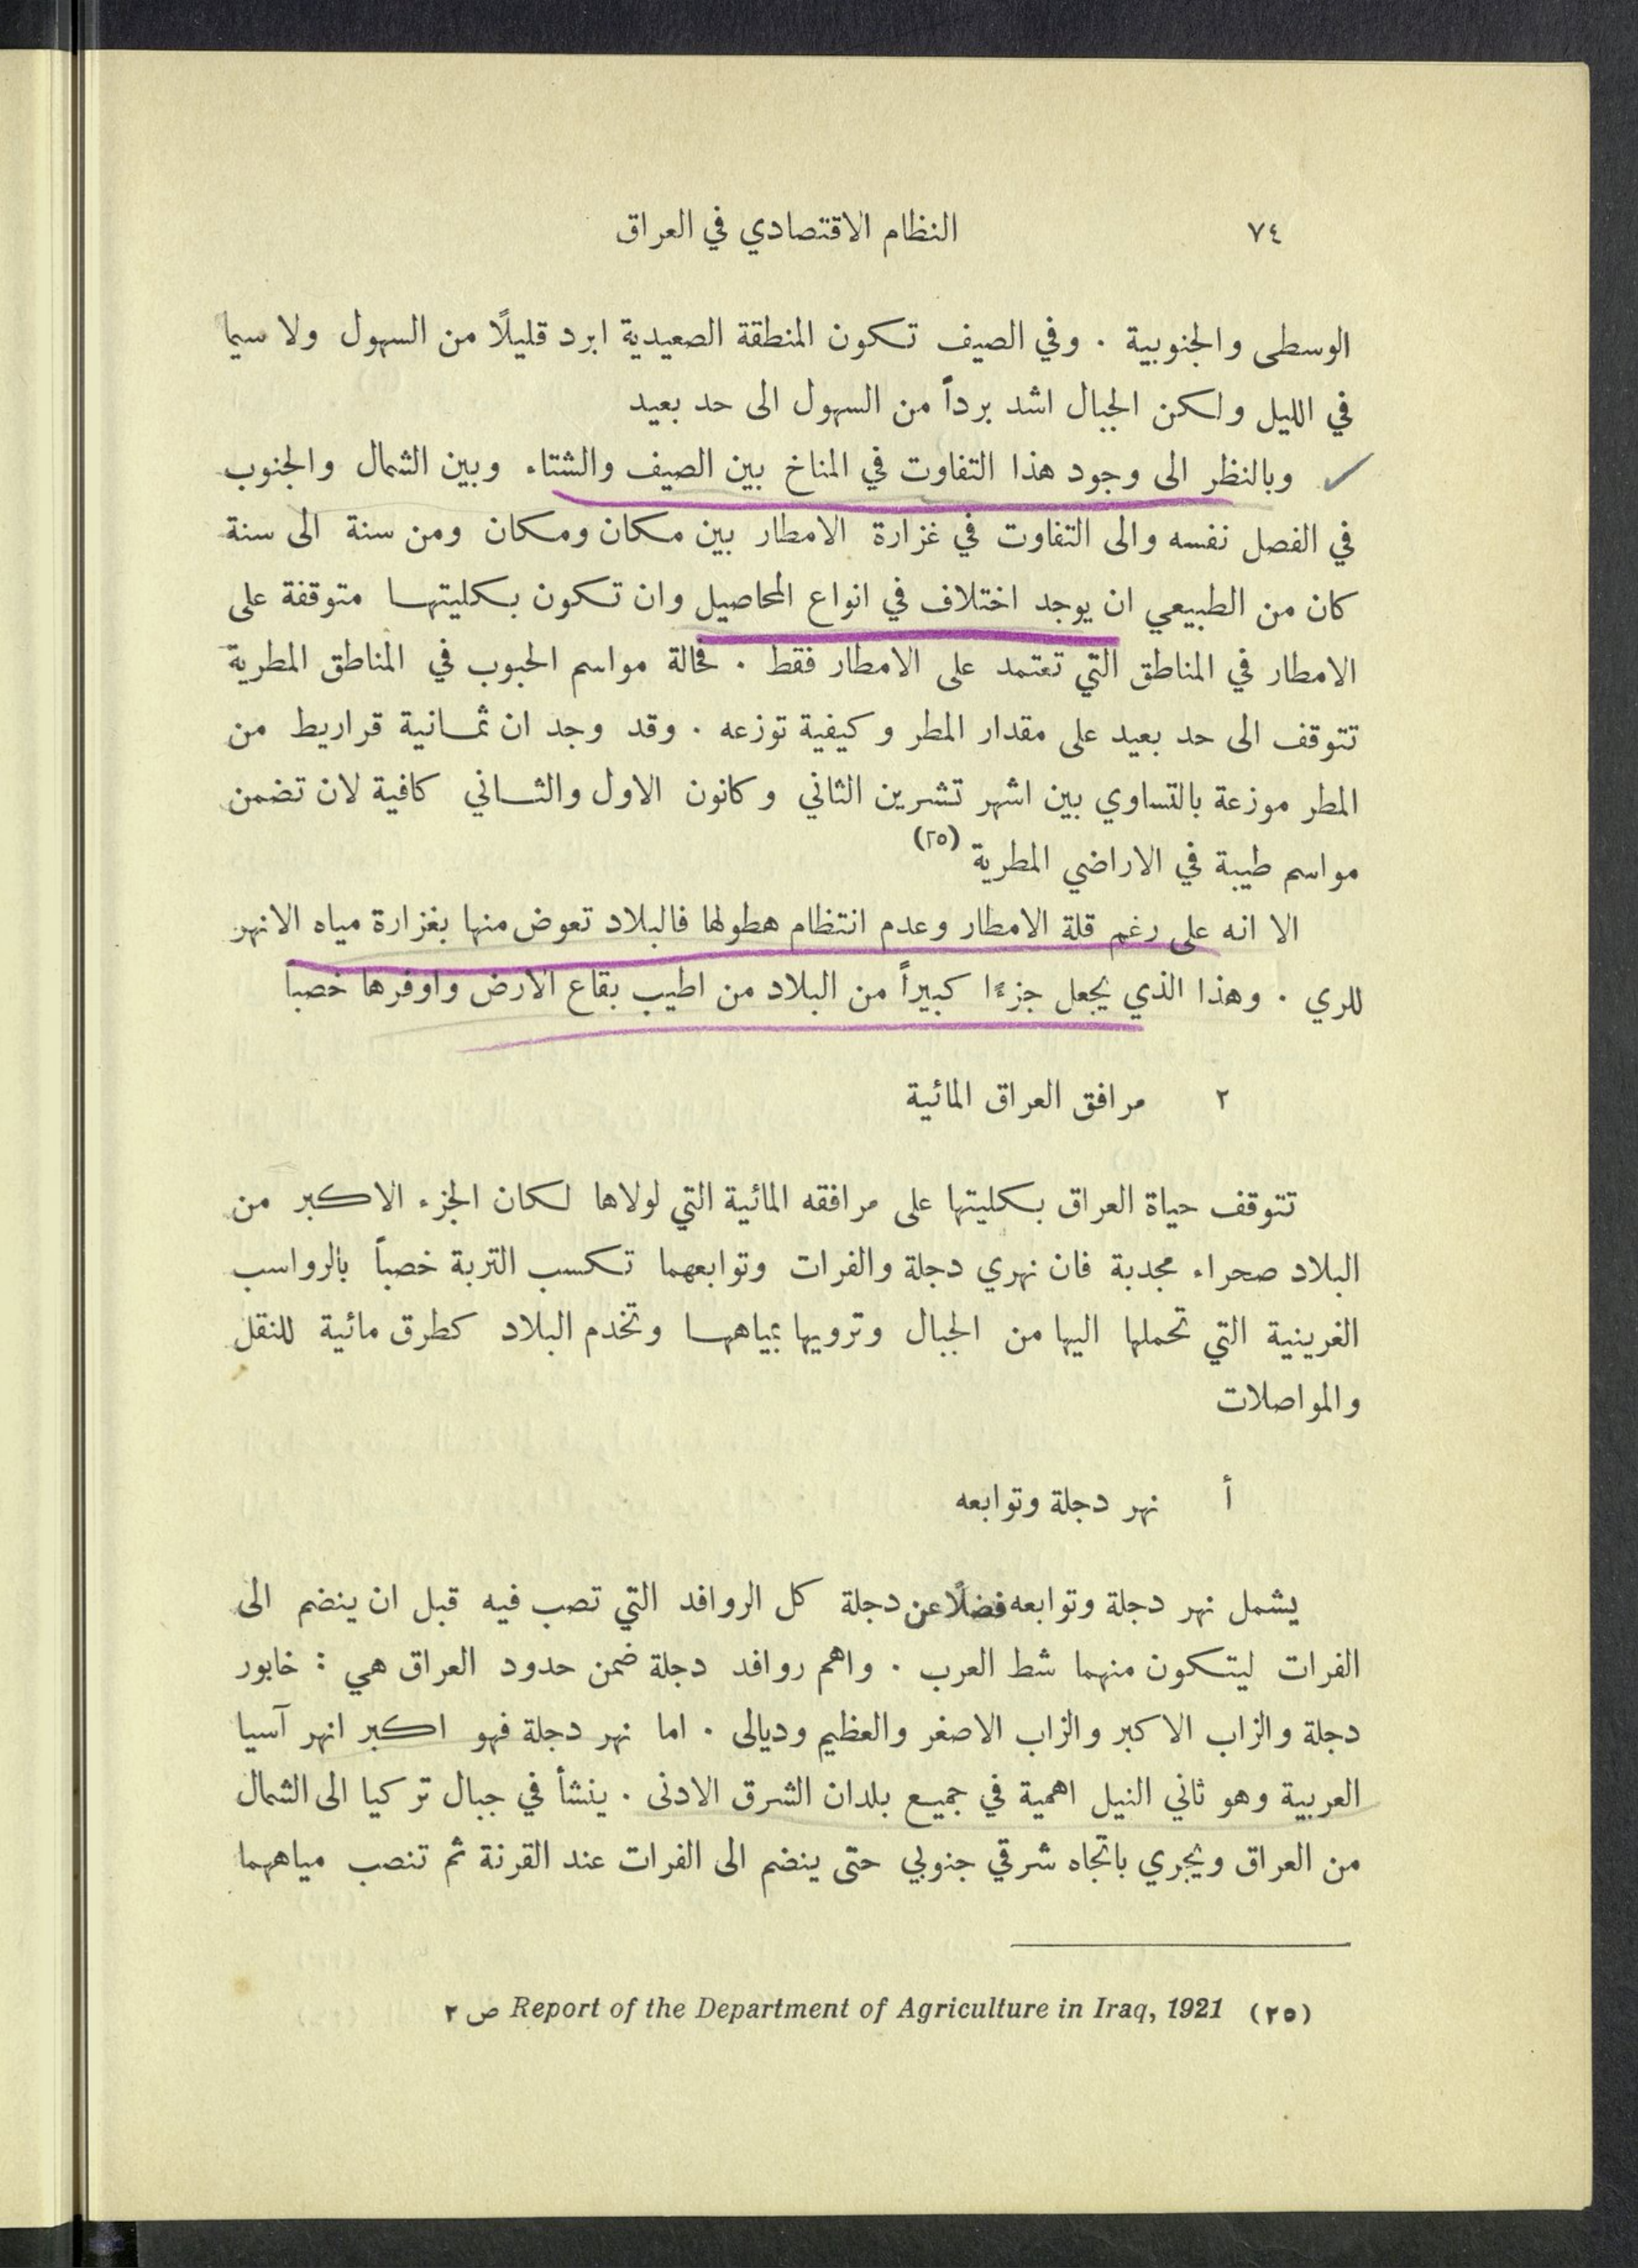 ٧٤ النظام الاقتصادي في العراق
الوسطى والجنوبية . وفي الصيف تكون المنطقة الصعيدية ابرد قليلًا من السهول ولا سيما
في الليل ولكن الجبال اشد برداً من السهول الى حد بعيد
وبالنظر الى وجود هذا التفاوت في المناخ بين الصيف والشتاء وبين الشمال والجنوب
في الفصل نفسه والى التفاوت في غزارة الامطار بين مكان ومكان ومن سنة الى سنة
كان من الطبيعي ان يوجد اختلاف في انواع المحاصيل وان تكون بكليتها متوقفة على
الامطار في المناطق التي تعتمد على الامطار فقط . فحالة مواسم الحبوب في المناطق المطرية
تتوقف الى حد بعيد على مقدار المطر وكيفية توزعه . وقد وجد ان ثمانية قراريط من
المطر موزعة بالتساوي بين اشهر تشرين الثاني وكانون الاول والثاني كافية لان تضمن
مواسم طيبة في الاراضي المطرية (٢٥)
الا انه على رغم قلة الامطار وعدم انتظام هطولها فالبلاد تعوض منها بغزارة مياه الانهر
للري . وهذا الذي يجعل جزءًا كبيراً من البلاد من اطيب بقاع الارض واوفرها خصباً
٢ مرافق العراق المائية
تتوقف حياة العراق بكليتها على مرافقه المائية التي لولاها لكان الجزء الاكبر من
البلاد صحراء مجدبة فان نهري دجلة والفرات وتوابعهما تكسب التربة خصباً بالرواسب
الغرينية التي تحملها اليها من الجبال وترويها بمياهها وتخدم البلاد كطرق مائية للنقل
والمواصلات
أ نهر دجلة وتوابعه
يشمل نهر دجلة وتوابعه فضلًا عن دجلة كل الروافد التي تصب فيه قبل ان ينضم الى
الفرات ليتكون منهما شط العرب . واهم روافد دجلة ضمن حدود العراق هي : خابور
دجلة والزاب الاكبر والزاب الاصغر والعظيم وديالى . اما نهر دجلة فهو اكبر انهر آسيا
العربية وهو ثاني النيل اهمية في جميع بلدان الشرق الادنى . ينشأ في جبال تركيا الى الشمال
من العراق ويجري باتجاه شرقي جنوبي حتى ينضم الى الفرات عند القرنة ثم تنصب مياههما
(٢٥) Report of the Department of Agriculture in Iraq, 1921 ص ٢